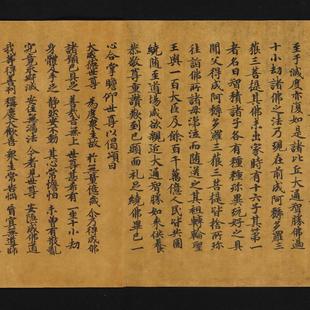 至于滅度亦復如是諸比丘大通智勝佛過
十小劫諸佛之法乃現在前成阿耨多羅三
藐三菩提其佛未出家時有十六子其第一
者名曰智積諸子各有種種珍異玩好之具
聞父得成阿耨多羅三藐三菩提皆捨所珍
往詣佛所諸母涕泣而隨送之其祖轉輪聖
王與一百大臣及餘百千萬億人民皆共圍
繞隨至道場咸欲親近大通智勝如來供養
恭敬尊重讚歎到已頭面礼足繞佛畢已一
心合掌瞻仰世尊以偈頌曰
大威德世尊 為度衆生故 於无量億歲 尒乃得成佛
諸願已具足 善哉吉无上 世尊甚希有 一坐十小劫
身體及手足 靜然安不動 其心常憺怕 未曾有散亂
究竟永寂滅 安住无漏法 今者見世尊 安隱成佛道
我等得善利 稱慶大歡喜 衆生常苦惱 盲瞑无導師